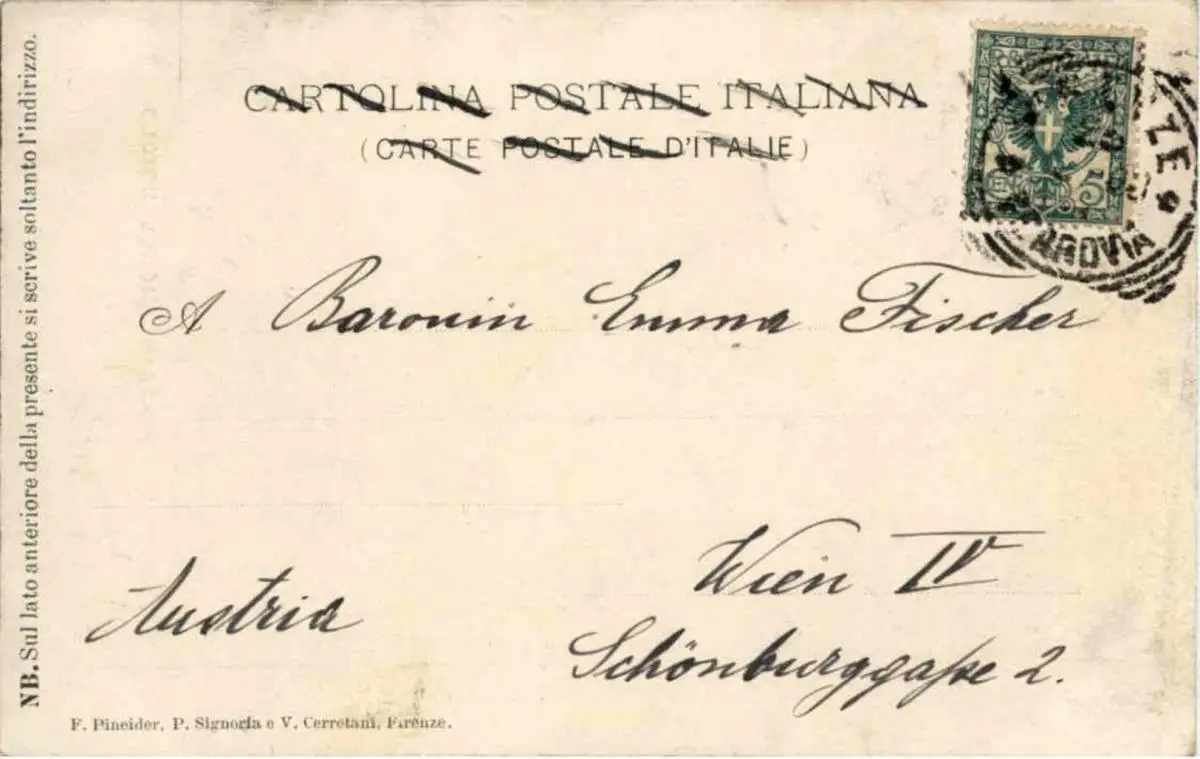 CARTOLINA POSTALE ITALIANA
(CARTE POSTALE D'ITALIE)
5
ZE
A Baronin Emma Fischer
Wien IV
Austria
Schönburggaße 2.
F. Pineider, P. Signoria e V. Cerretani, Firenze.
NB. Sul lato anteriore della presente si scrive soltanto l'indirizzo.